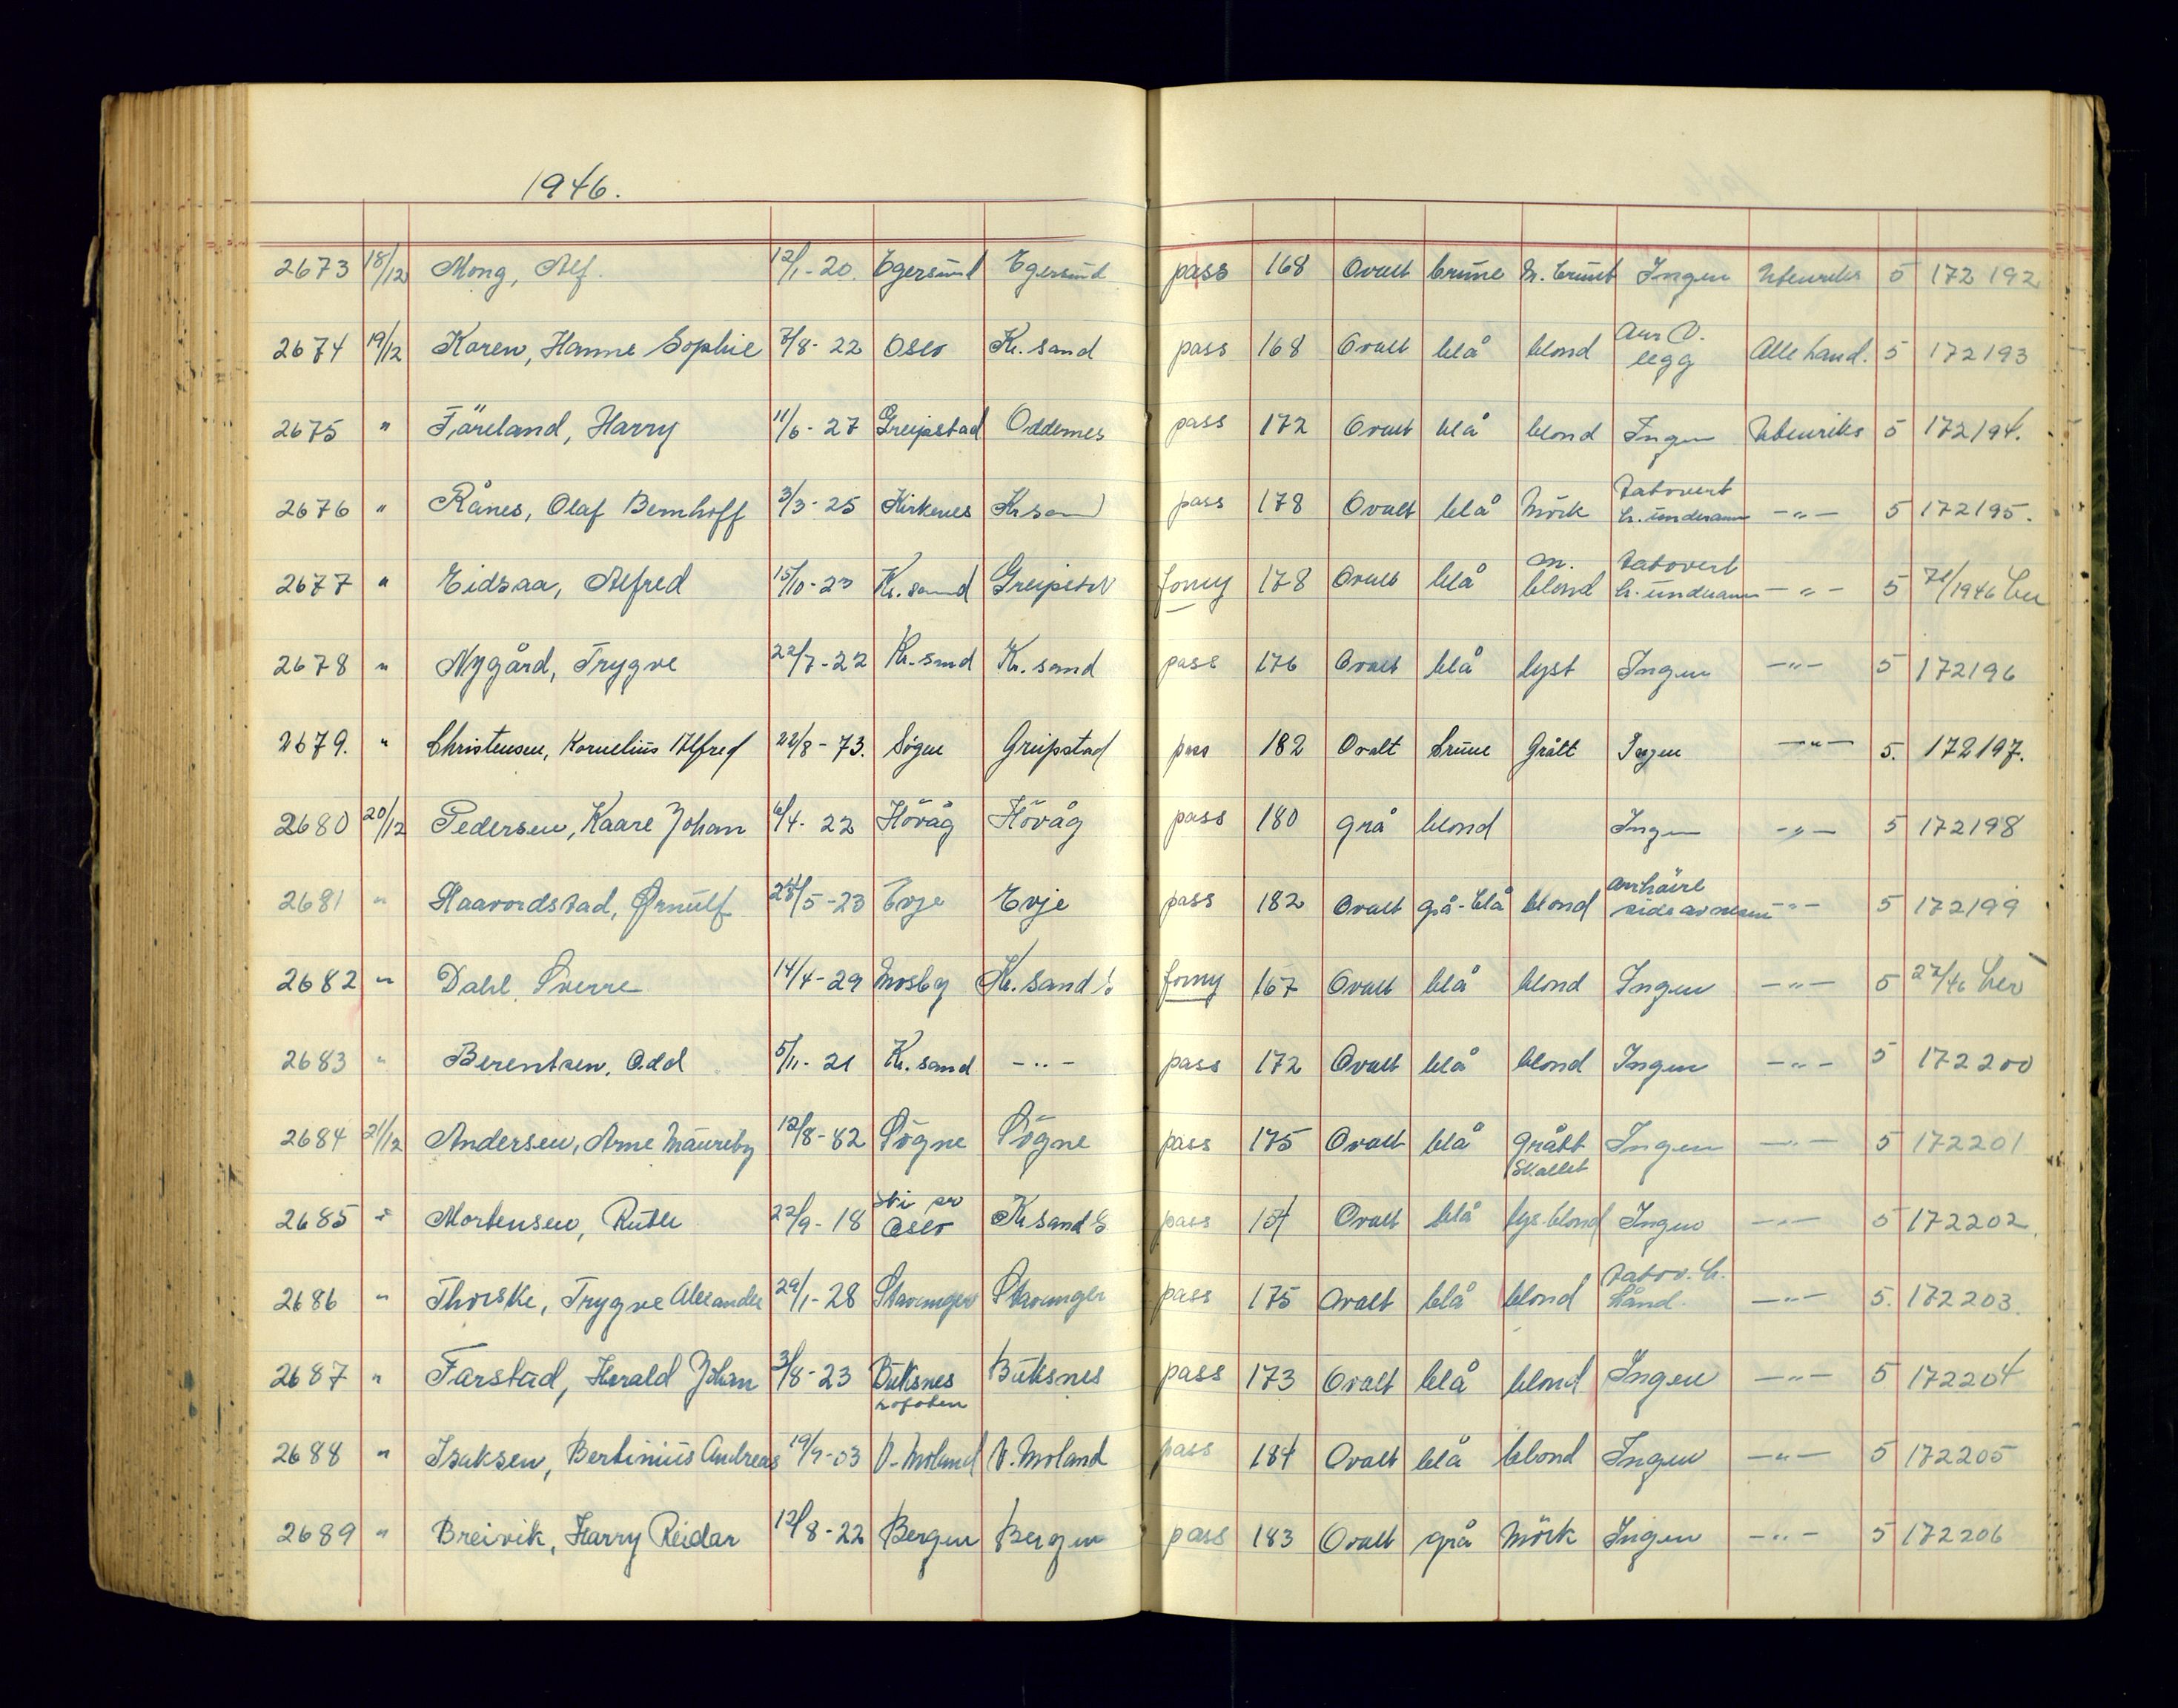 1946.
2673 18/12 Mong, Alf. 12/1-20. Egersund Egersund pass 168 Ovalt brune m. brunt Ingen Utenriks 5 172 192
2674 19/12 Karen, Hanne Sophie 7/8-22 Oslo Kr. sand pass 168 Ovalt blå blond Arr V. legg Alle land. 5 172193
2675 " Färeland, Harry 11/6-27 Greipstad Oddernes pass 172 Ovalt blå blond Ingen Utenriks 5 172194.
2676 " Rånes, Olaf Bernhoff 3/3-25 Kirkenes Kr sand pass 178 Ovalt blå Mörk Tatovert h. underarm -"- 5 172195.
2677 " Eidsaa, Alfred 15/10-23 Kr. sand Greipstad forny 178 Ovalt blå m. blond tatovert h. underarm -"- 5 71/1946
2678 " Nygård, Trygve 22/7-22 Kr. sand Kr. sand pass 176 Ovalt blå lyst Ingen -"- 5 172196
2679. " Christensen, Kornelius Alfred 22/8-73. Sögne Greipstad pass 182 Ovalt brune Grått Ingen -"- 5. 172197.
2680 20/12 Pedersen, Kaare Johan 6/4-22 Hövåg Hövåg pass 180 grå blond Ingen -"- 5 172198
2681 " Haavordstad, Ørnulf 5-23 Evje Evje pass 182 Ovalt grå-blå blond arr höire side av nesen -"- 5 172199
2682 " Dahl, Sverre 14/4-29 Mosby Kr. sand S forny 167 Ovalt blå blond Ingen -"- 5 27/46
2683 " Berentsen, Odd 5/11-21 Kr. sand -"- pass 172 Ovalt blå blond Ingen -"- 5 172200
2684 21/12 Andersen, Arne Mauritz 12/8-82 Sögne Sögne pass 175 Ovalt blå grått Skallet Ingen -"- 5 172201
2685 " Mortensen, Ruth 22/9-18 Ski pr Oslo Kr sand S pass Ovalt blå lys blond Ingen -"- 5 172202.
2686 " Thorske, Trygve Alexander 29/1-28 Stavanger Stavanger pass 175 Ovalt blå blond Tatov. h. hånd. -"- 5. 172203.
2687 " Farstad, Harald Johan 3/8-23 Buksnes Lofoten Buksnes pass 173 Ovalt blå blond Ingen -"- 5 172204
2688 " Isaksen, Bertinius Andreas 19/9-03 V. Moland V. Moland pass 184 Ovalt blå blond Ingen -"- 5 172205
2689 " Breivik, Harry Reidar 12/8-22 Bergen Bergen pass 183 Ovalt grå Mörk Ingen -"- 5 172206